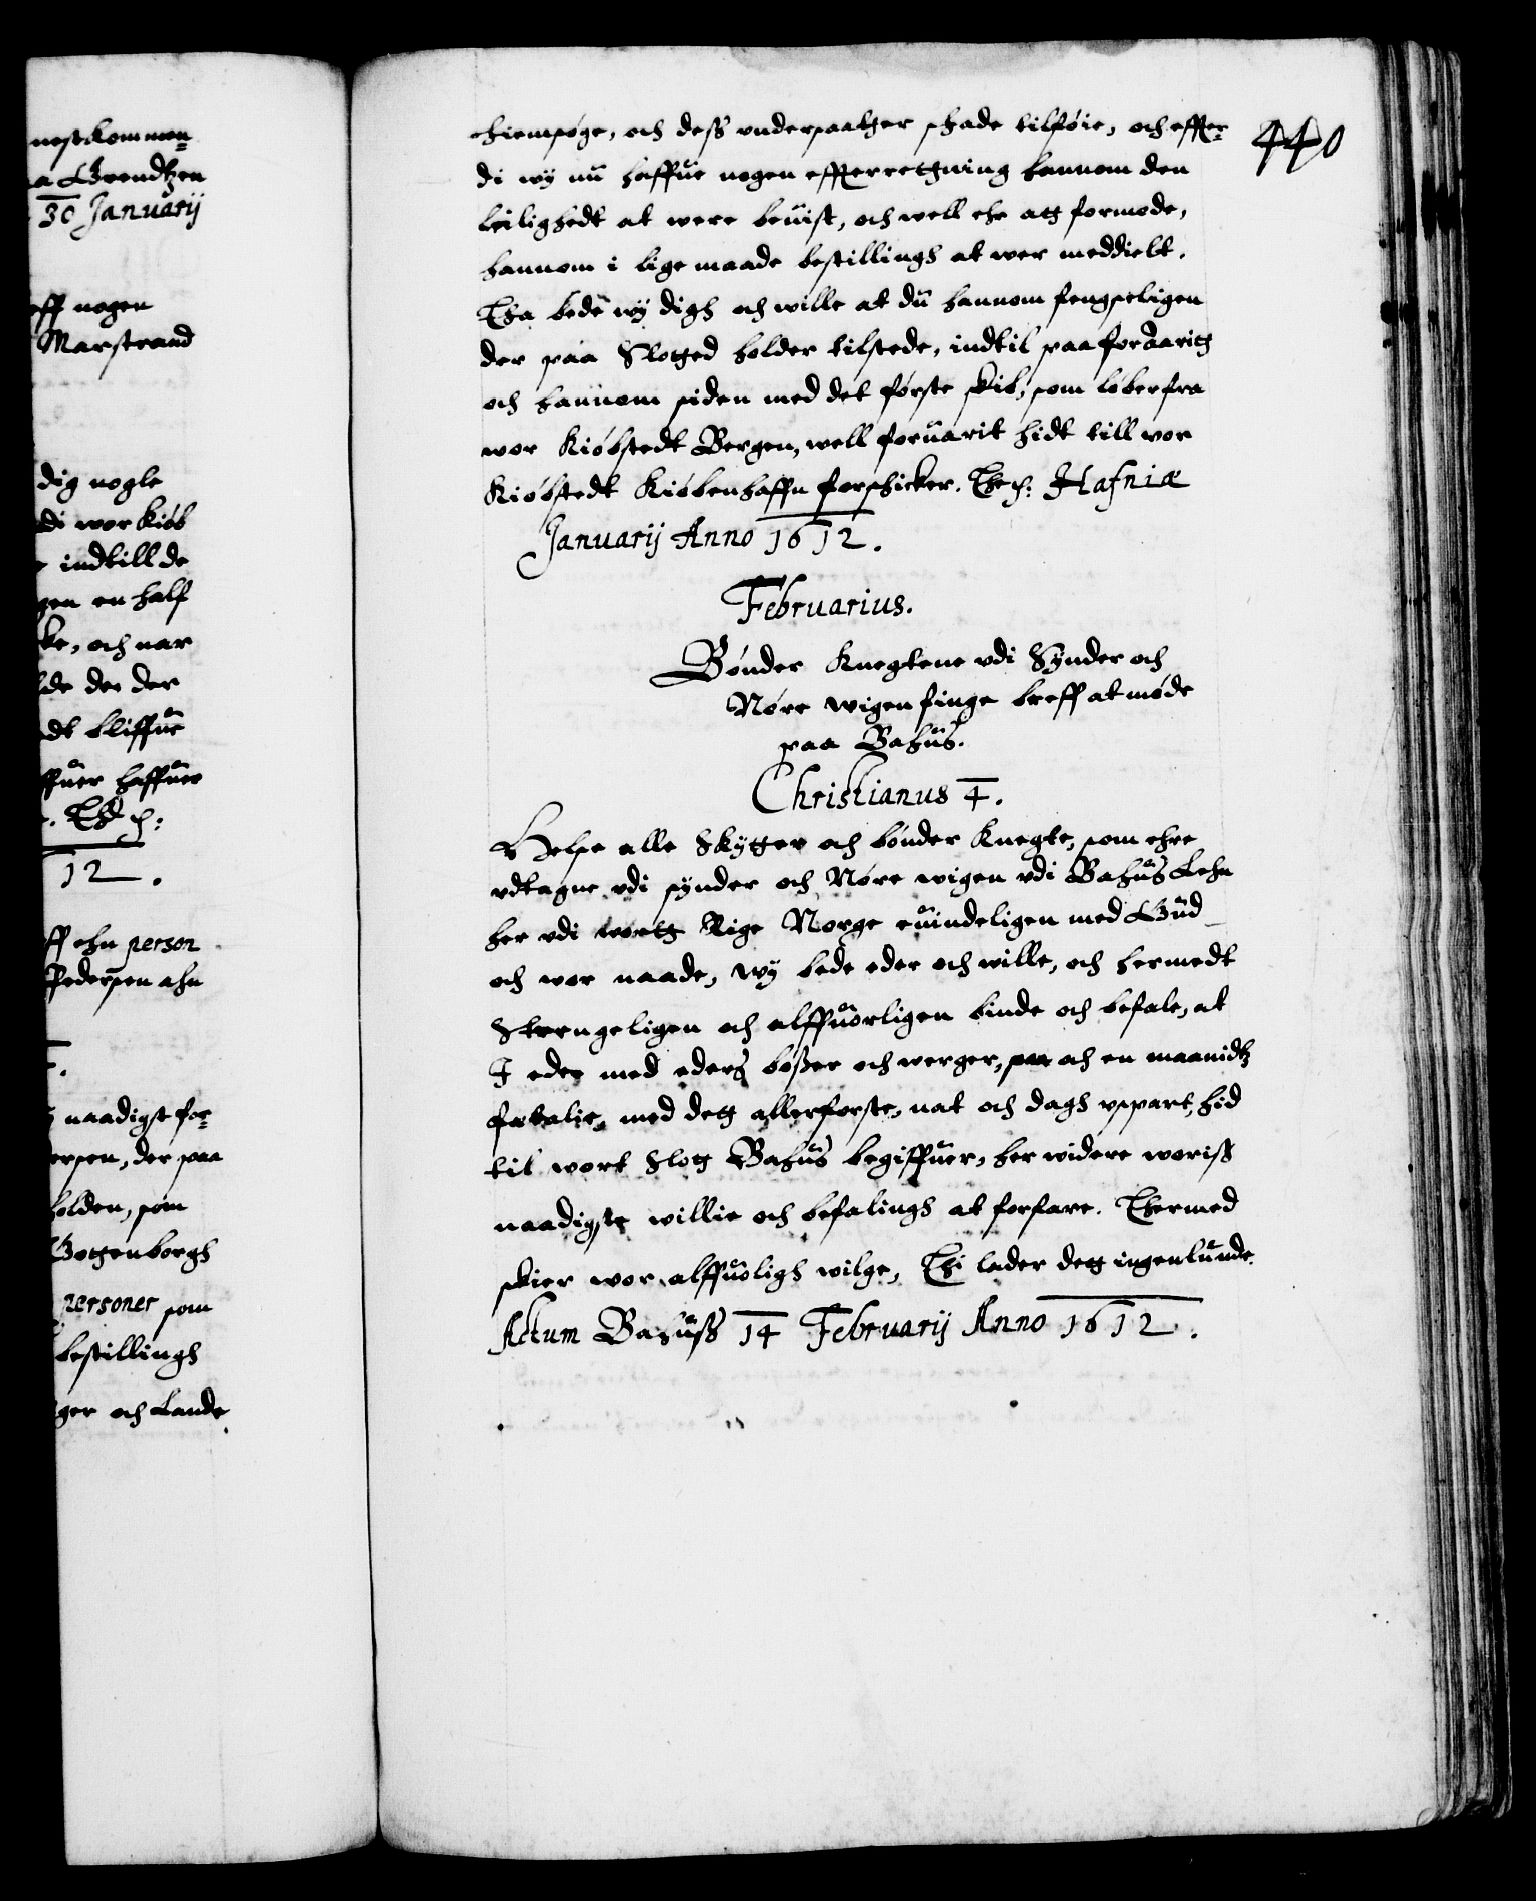 nestkommen=
a Grendtzen
30 Januarij
eff nogen
Marstrand
dig nogle
di wor kiøb
indtill de
gen en half
ke, och nar
lde de der
dt bliffue
ffuer haffuer
12.
ff ehn person
Pedersen ahn
naadigst for=
ersen, der paa
holden, som
Gottenborgh
personer som
bestillingh
ger och Lande
440
hiemsøge, och dess vndersaatter schade tilføie, och effter=
di wy nu haffue nogen effterretgning hannom den
leilighedt at were beuist, och well ehr att formode,
hannom i lige maade bestillingh at wer meddielt.
Tha bede wy digh och wille at du hannom fengseligen
der paa Slotted holder tilstede, indtil paa foraaritt
och hannom siden med det første skib, som løber fra
wor Kiøbstedt Bergen, well foruarit hidt till vor
Kiøbstedt Kiøbenhaffn forschicker. Hafniæ
Januarij Anno 1612.
Februarius.
Bønder Knegtene vdi Synder och
Nøre wigen finge breff at møde
paa Bahus.
Christianus 4.
Helse alle Skytter och bønder Knegte, som ehre
vdtagne vdi synder och Nøre wigen vdi Bahus Lehn
her vdi wortt Rige Norge euindeligen med Gud
och wor naade, wy bede eder och wille, och hermedt
Strengeligen och alffuorligen binde och befale, at
I eder med eders bøsser och werger, och en maanidtz
fetalie, med dett allerforste, nat och dagh vspart, hid
til wort Slott Bahus begiffuer, her widere woriss
naadigste willie och befalingh at forfare. Thermed
skier wor alffuoligh wilge, Thi lader dett ingenlunde.
Actum Bahuss 14 Februarij Anno 1612.